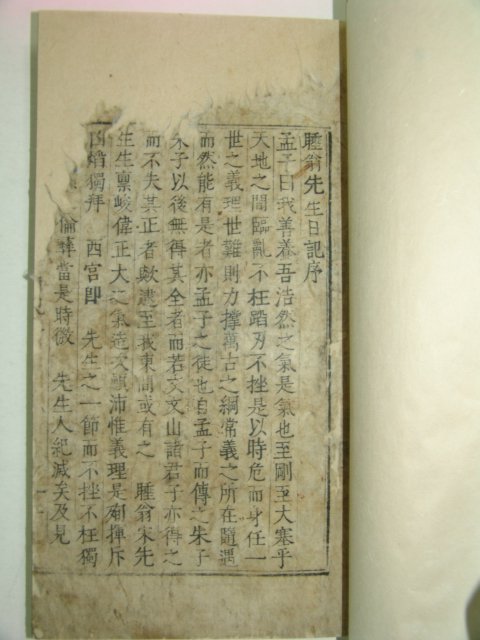 睡翁先生日記序
孟子曰我善養吾浩然之氣是氣也至剛至大塞乎
天地之間臨亂不枉蹈刃不挫是以時危而身任一
世之義理世難則力撑萬古之綱常義之所在隨遇
而然能有是者亦孟子之徒也自孟子而傳之朱子
朱子以後無得其全者而若文文山諸君子亦得之
而不失其正者歟至我東間或有之 睡翁宋先
生生禀峻偉正大之氣造次顚沛惟義理是
揮斥
凶焰獨拜 西宮卽 先生之一節而不挫不枉獨
倫彛當是時微 先生人紀滅矣及見